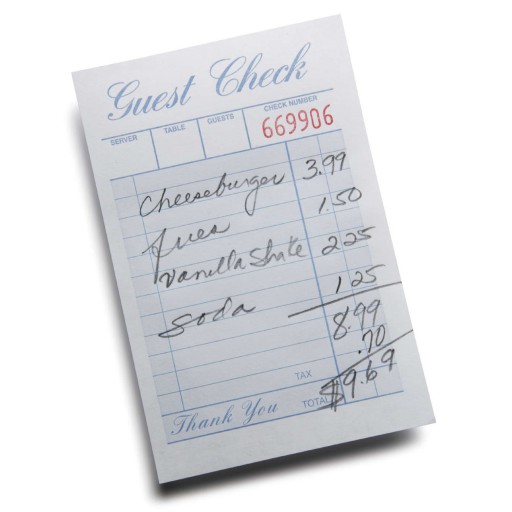 Guest Check
SERVER TABLE GUESTS CHECK NUMBER
669906
Cheeseburger 3.99
fries 1.50
Vanilla Shake 2.25
Soda 1.25
8.99
TAX .70
Thank You TOTAL $9.69